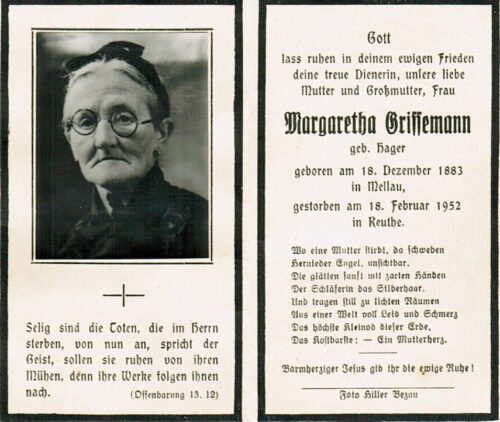 Selig sind die Toten, die im Herrn
sterben, von nun an, spricht der
Geist, sollen sie ruhen von ihren
Mühen, denn ihre Werke folgen ihnen
nach. (Offenbarung 13. 12)
Gott
lass ruhen in deinem ewigen Frieden
deine treue Dienerin, unsere liebe
Mutter und Großmutter, Frau
Margaretha Grissemann
geb. Hager
geboren am 18. Dezember 1883
in Mellau,
gestorben am 18. Februar 1952
in Reuthe.
Wo eine Mutter stirbt, da schweben
Hernieder Engel, unsichtbar.
Die glätten sanft mit zarten Händen
Der Schläferin das Silberhaar.
Und tragen still zu lichten Räumen
Aus einer Welt voll Leid und Schmerz
Das höchste Kleinod dieser Erde,
Das Kostbarste: – Ein Mutterherz.
Barmherziger Jesus gib ihr die ewige Ruhe!
Foto Hiller Bezau